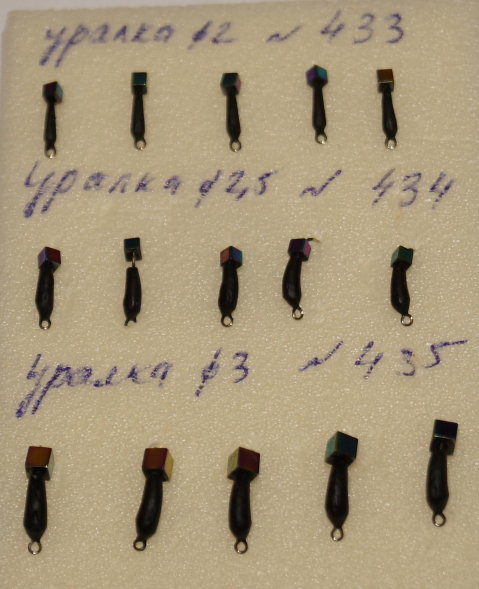 уралка ф2 N 433
Уралка ф2,5 N 434
Уралка ф3 N 435